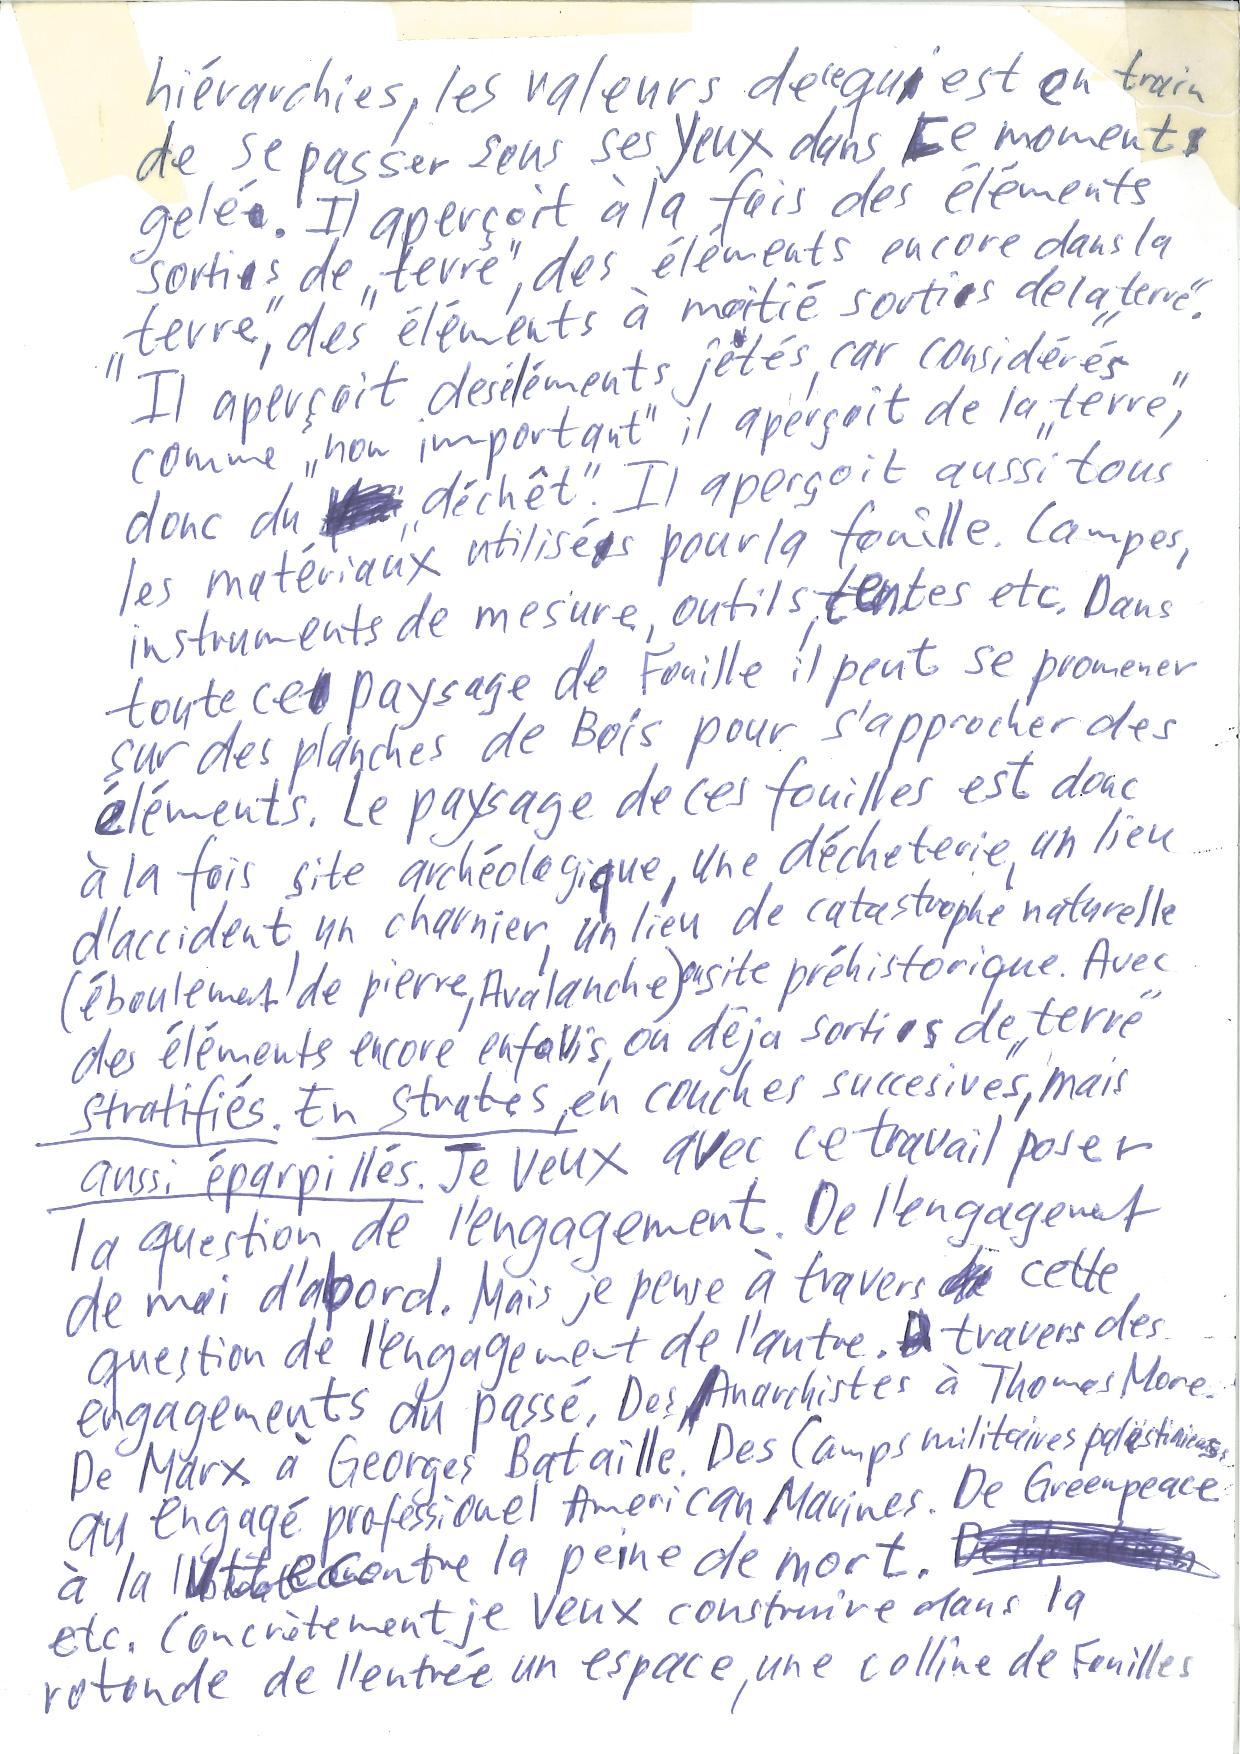 hiérarchies, les valeurs de ce qui est en train
de se passer sous ses yeux dans ce moment
gelé. Il aperçoit à la fois des éléments
sortis de „terre", des éléments encore dans la
„terre", des éléments à moitié sortis de la „terre".
Il aperçoit des éléments jêtés, car considérés
comme „non important" il aperçoit de la „terre",
donc du „déchêt". Il aperçoit aussi tous
les matériaux utilisés pour la fouille. Lampes,
instruments de mesure, outils, tentes etc. Dans
toute ce paysage de Fouille il peut se promener
sur des planches de Bois pour s'approcher des
éléments. Le paysage de ces fouilles est donc
à la fois site archéologique, une décheterie, un lieu
d'accident, un charnier, un lieu de catastrophe naturelle
(éboulement de pierre, Avalanche) ou site préhistorique. Avec
des éléments encore enfouis, ou déja sortis de „terre"
stratifiés. En strates, en couches succesives, mais
aussi éparpillés. Je veux avec ce travail poser
la question de l'engagement. De l'engagement
de moi d'abord. Mais je pense à travers cette
question de l'engagement de l'autre. A travers des
engagements du passé. Des Anarchistes à Thomas More.
De Marx à Georges Bataille. Des Camps militaires palestiniens
au engagé professionel American Marines. De Greenpeace
à la lutte contre la peine de mort.
etc. Concrètement je veux construire dans la
rotonde de l'entrée un espace, une colline de Fouilles